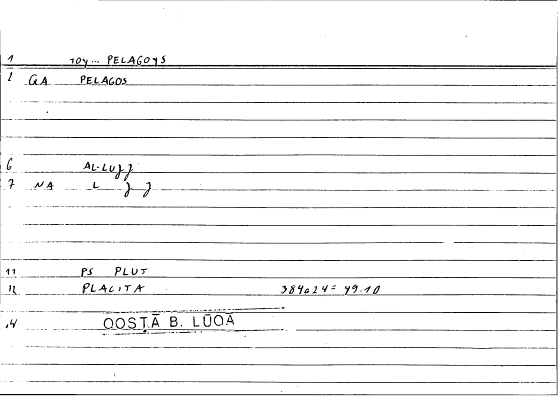 1 TOY... PELAGOYS
2 GA PELAGOS
6 AL-LUJJ
7 NA L J J
11 PS PLUT
12 PLACITA 384a24= 49.10
.4 QOSṬĀ B. LŪQĀ